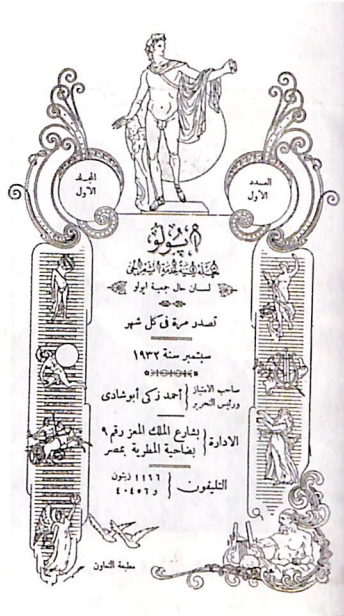 العدد
الأول
المجلد
الأول
أپولو
لسان حال جمعية أپولو
تصدر مرة فى كل شهر
سبتمبر سنة ١٩٣٢
صاحب الامتياز
ورئيس التحرير
أحمد زكى أبو شادى
الادارة
بشارع الملك المعز رقم ٩
بضاحية المطرية بمصر
التليفون
١١٦٦ زيتون
و ٤٠٤٥٦
مطبعة التعاون